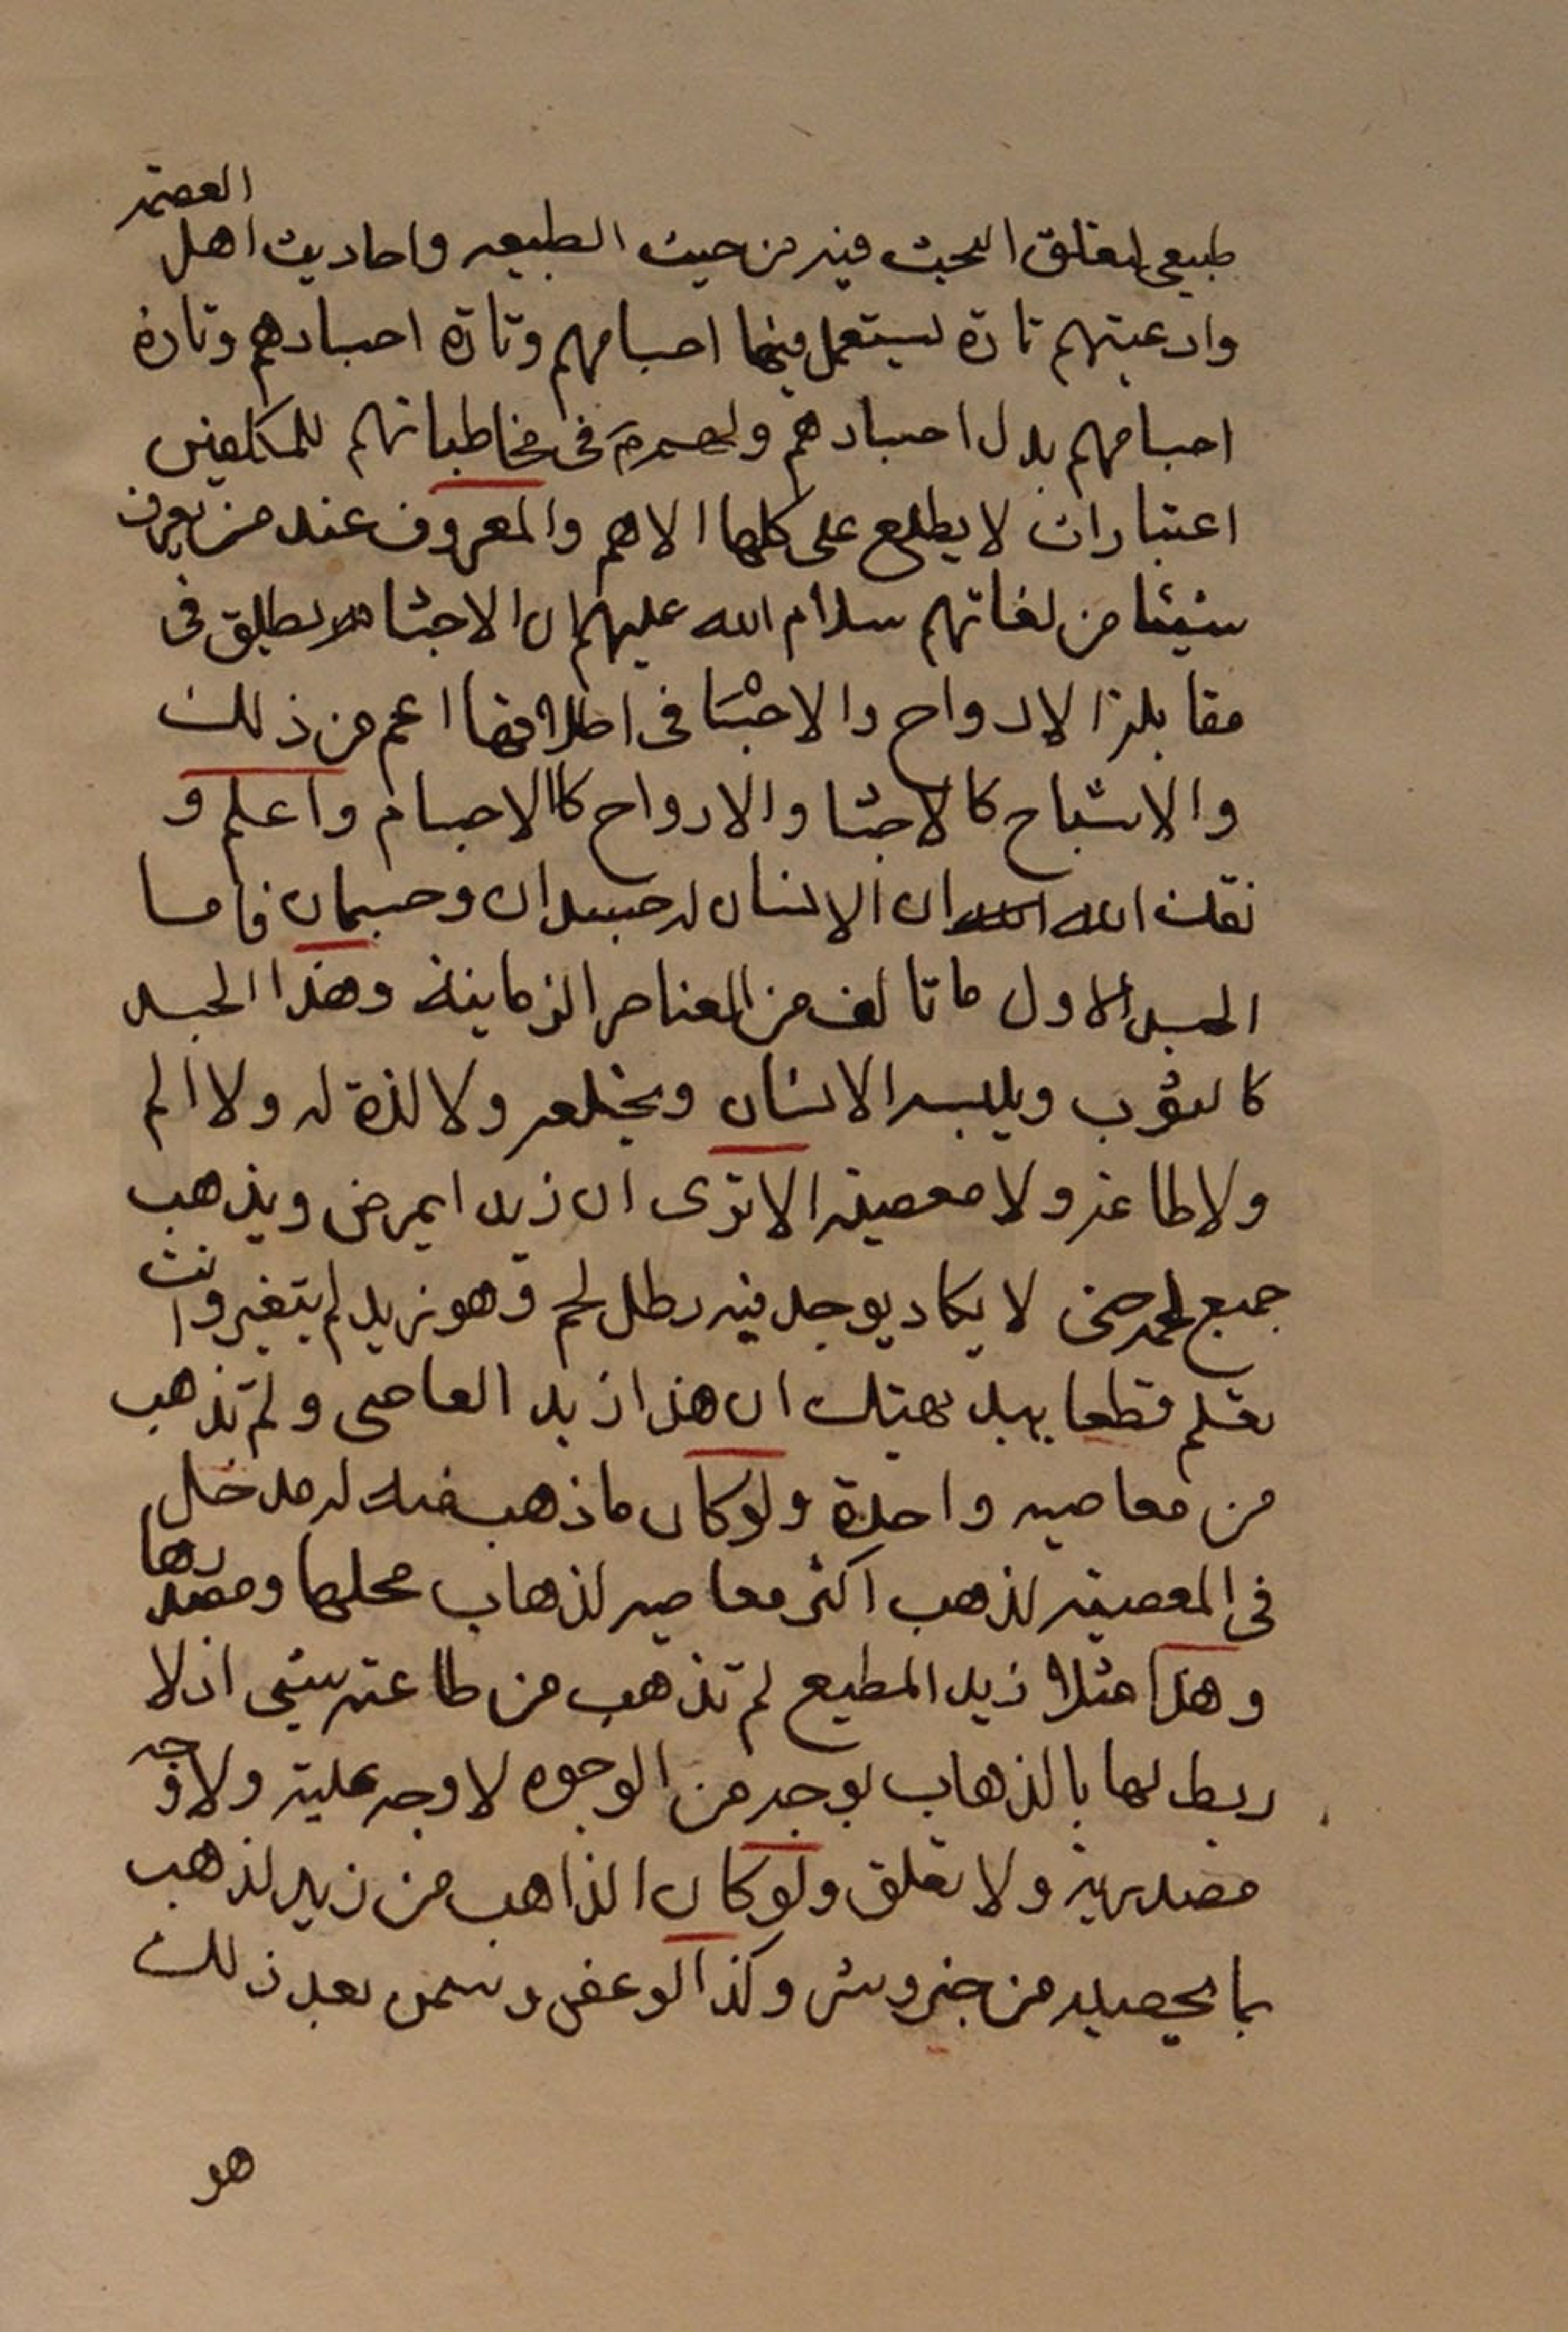 طبيعى لتعلق البحث فيه من حيث الطبيعه واحاديث اهل العصمة
وادعيتهم تارة يستعمل فيها اجسامهم وتارة اجسادهم وتارة
اجسامهم بدل اجسادهم ولهم ع فى مخاطباتهم للمكلفين
اعتبارات لا يطلع على كلها الا هم والمعروف عند من يعرف
شيئا من لغاتهم سلام الله عليهم ان الاجساد تطلق فى
مقابلة الارواح والاجسام فى اطلاقها اعم من ذلك
والاشباح كالاجساد والارواح كالاجسام واعلم و
فقك الله ان الانسان له جسدان وجسمان فاما
الجسد الاول ما تالف من العناصر الزمانية وهذا الجسد
كالثوب ويلبسه الانسان ويخلعه ولا لذة له ولا الم
ولا طاعة ولا معصية الا ترى ان زيدا يمرض ويذهب
جميع لحمه حتى لا يكاد يوجد فيه رطل لحم وهو زيد لم يتغير وانت
تعلم قطعا ببديهتك ان هذا زيد العاصى ولم تذهب
من معاصيه واحدة ولو كان ما ذهب منه له مدخل
فى المعصية لذهب اكثر معاصيه لذهاب محلها ومصدرها
وهذا مثلا زيد المطيع لم تذهب من طاعته شيئ اذ لا
ربط لها بالذهاب بوجه من الوجوه لا وجه علية ولا وجه
مصدرية ولا تعلق ولو كان الذاهب من زيد لذهب
بما يحصيه من خير وشر وكذا لو عفن وسمن بعد ذلك
هو